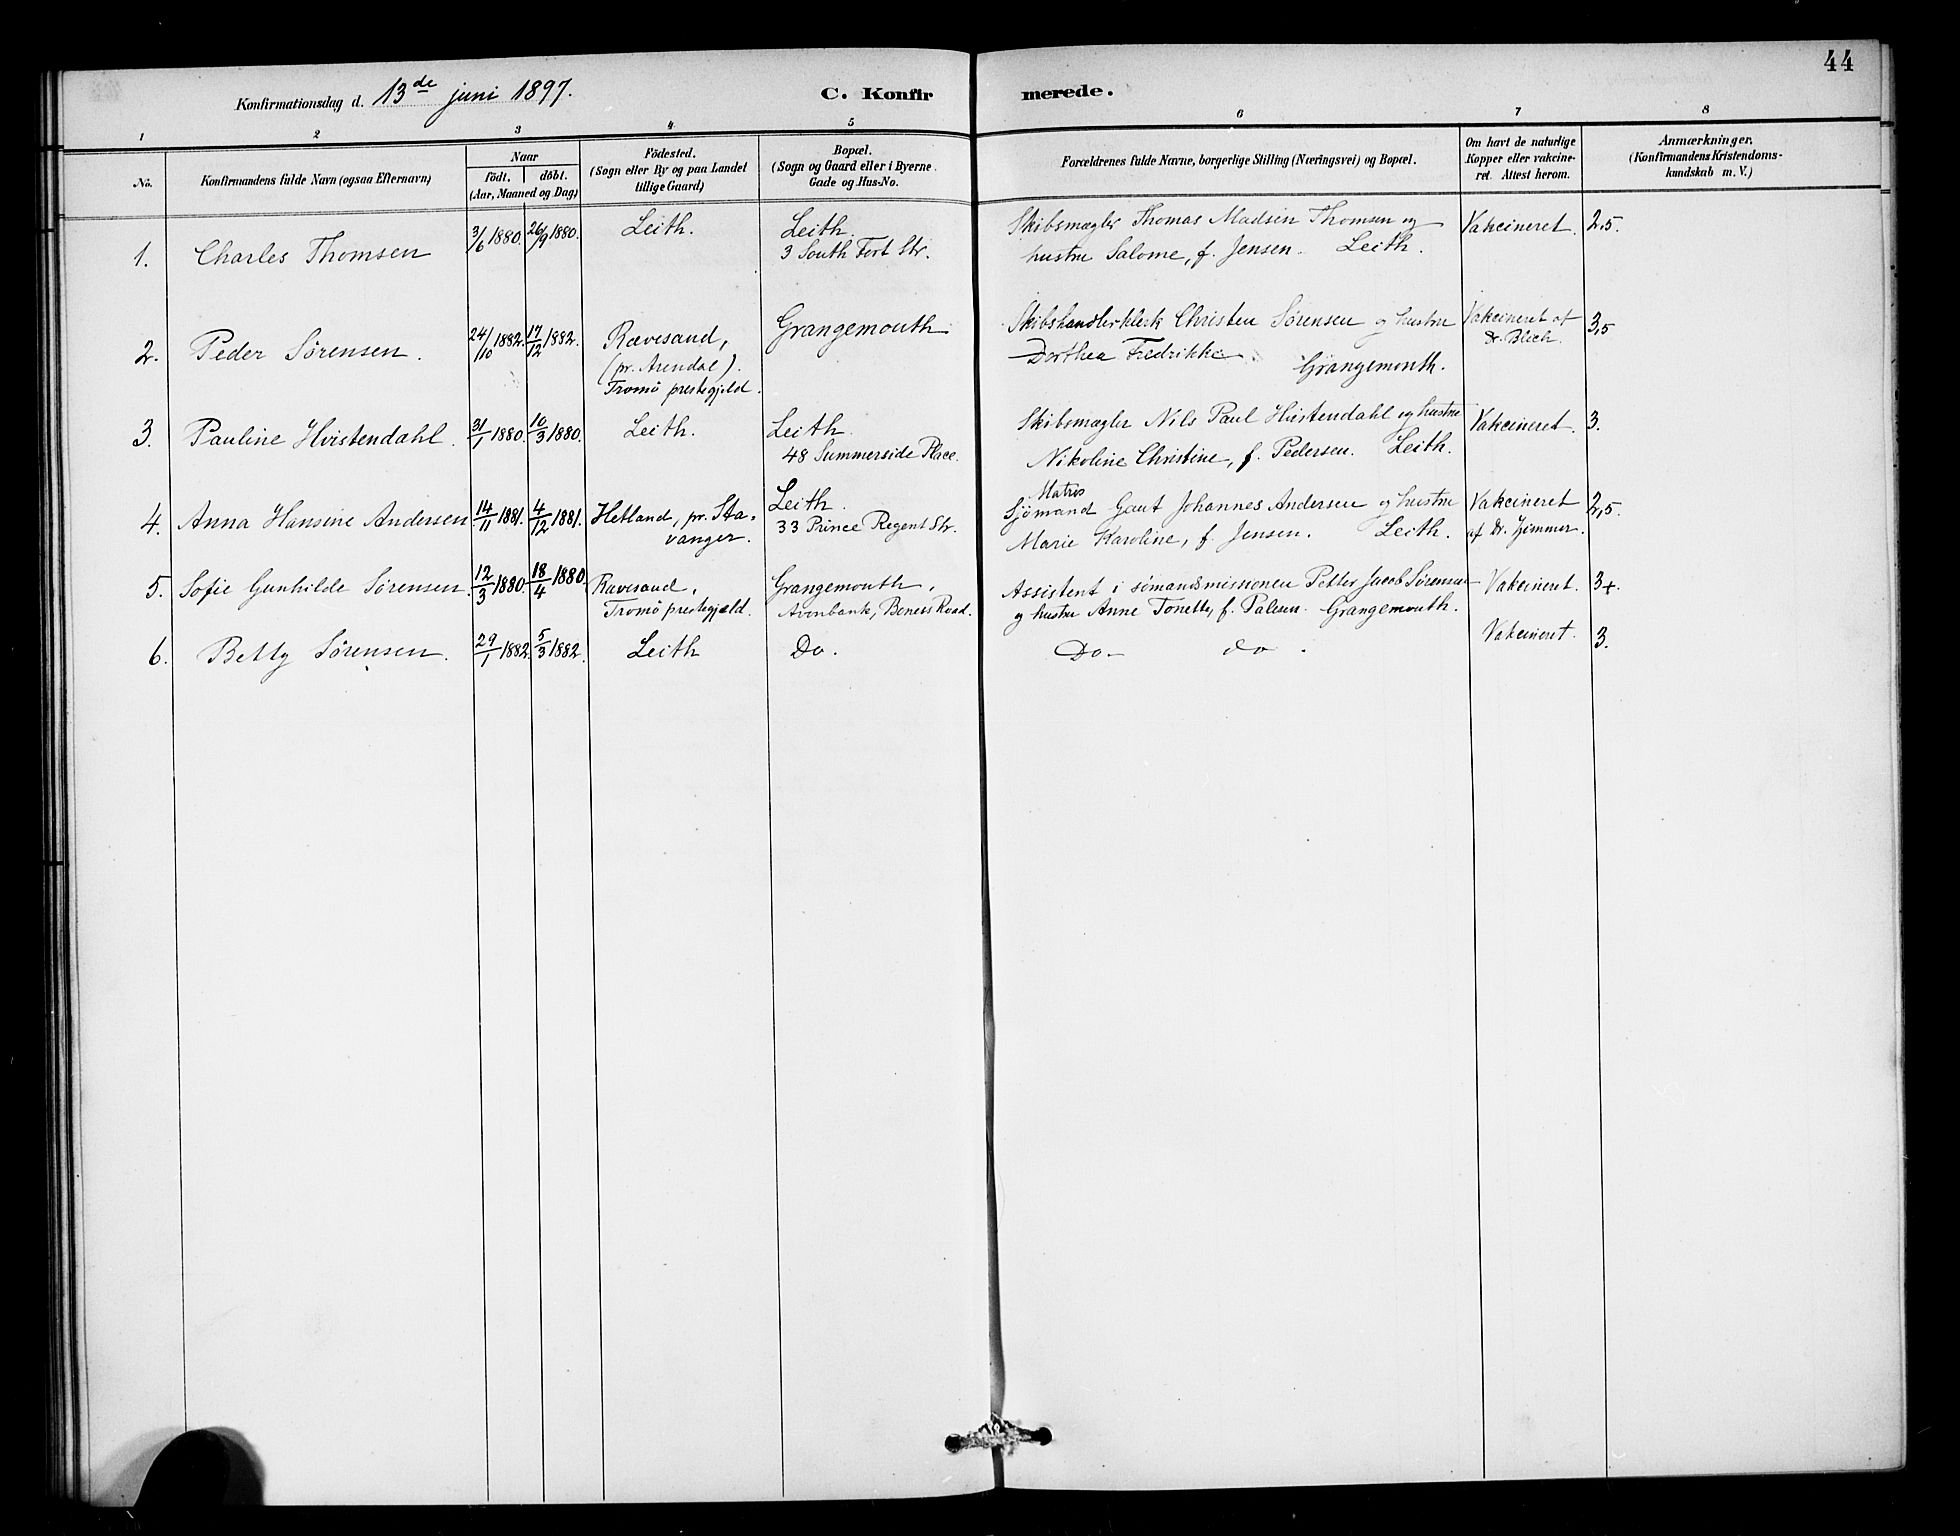 44
Konfirmationsdag d. 13de juni 1897. C. Konfir merede.
1 2 3 4 5 6 7 8
No. Konfirmandens fulde Navn (ogsaa Efternavn) Naar födt. döbt. (Aar, Maaned og Dag) Födested. (Sogn eller By og paa Landet tillige Gaard) Bopæl. (Sogn og Gaard eller i Byerne Gade og Hus-No. Forældrenes fulde Navne, borgerlige Stilling (Næringsvei) og Bopæl. Om havt de naturlige Kopper eller vakcineret. Attest herom. Anmærkninger. (Konfirmandens Kristendomskundskab m. V.)
1. Charles Thomsen 3/6 1880. 26/9 1880. Leith. Leith. Skibsmægler Thomas Madsen Thomsen og Vakcineret. 2,5.
3 South Fort Str. hustru Salome, f. Jensen. Leith.
2. Peder Sørensen. 24/10 1882. 17/12 1882. Rævesand, Grangemouth Skibshandlerklerk Christen Sørensen og hustru Vakcineret af 3,5
(pr. Arendal). Dorthea Fredrikke Dr. Blich.
Tromö prestegjeld. Grangemouth.
3. Pauline Hvistendahl. 31/1 1880. 10/3 1880. Leith. Leith. Skibsmægler Nils Paul Hvistendahl og hustru Vakcineret. 3.
48 Summerside Place. Nikoline Christine, f. Pedersen. Leith.
Matros
4. Anna Hansine Andersen 14/11 1881. 4/12 1881. Hetland, pr. Sta- Leith. Sjömand Gaut Johannes Andersen og hustru Vakcineret 2,5.
vanger. 33 Prince Regent Str. Marie Karoline, f. Jensen. Leith. af Dr.
5. Sofie Gunhilde Sørensen. 12/3 1880. 18/4 1880. Ravesand, Grangemouth, Assistent i sömandsmissionen Petter Jacob Sørensen Vakcineret. 3+.
Tromö prestegjæld. Avonbank, Road. og hustru Anne f. Grangemouth.
6. Betty Sørensen. 29/1 1882. 5/3 1882. Leith Do. Do - do. Vakcineret. 3.